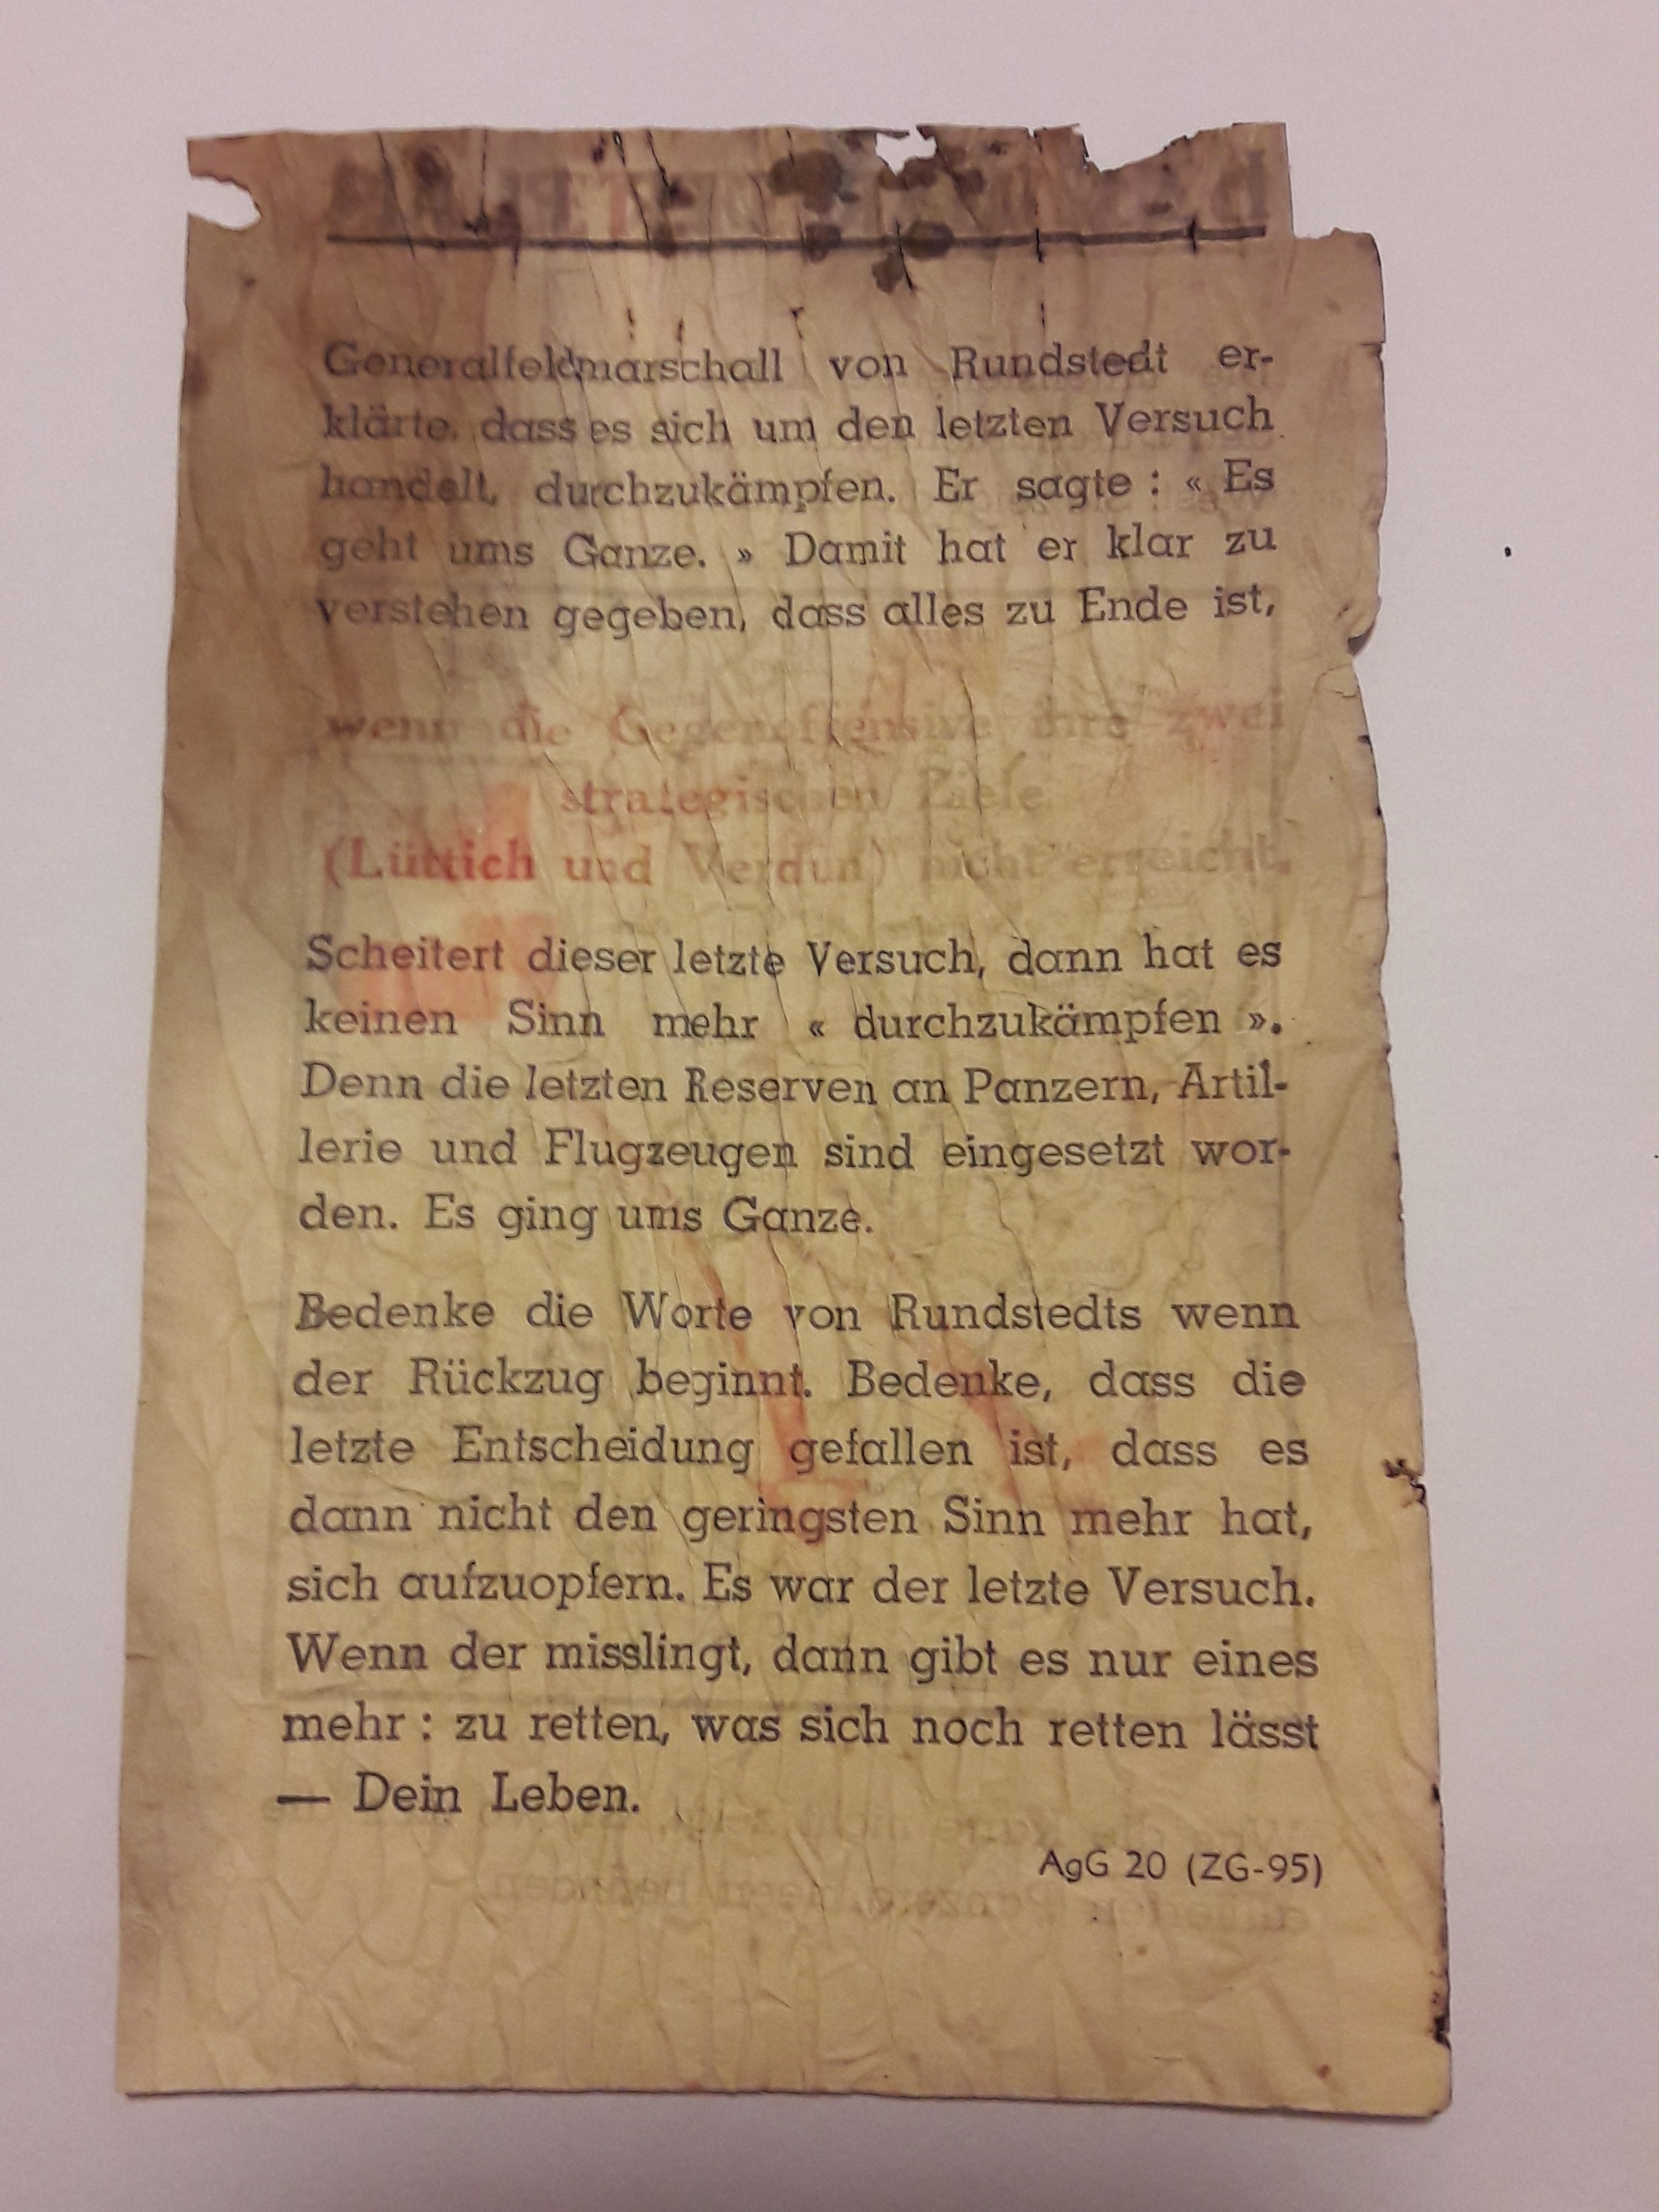 Generalfeldmarschall von Rundstedt er-
klärte, dass es sich um den letzten Versuch
handelt, durchzukämpfen. Er sagte : « Es
geht ums Ganze. » Damit hat er klar zu
verstehen gegeben, dass alles zu Ende ist,
wenn die Gegenoffensive ihre zwei
strategischen Ziele
(Lüttich und Verdun) nicht erreicht.
Scheitert dieser letzte Versuch, dann hat es
keinen Sinn mehr « durchzukämpfen ».
Denn die letzten Reserven an Panzern, Artil-
lerie und Flugzeugen sind eingesetzt wor-
den. Es ging ums Ganze.
Bedenke die Worte von Rundstedts wenn
der Rückzug beginnt. Bedenke, dass die
letzte Entscheidung gefallen ist, dass es
dann nicht den geringsten Sinn mehr hat,
sich aufzuopfern. Es war der letzte Versuch.
Wenn der misslingt, dann gibt es nur eines
mehr : zu retten, was sich noch retten lässt
— Dein Leben.
AgG 20 (ZG-95)